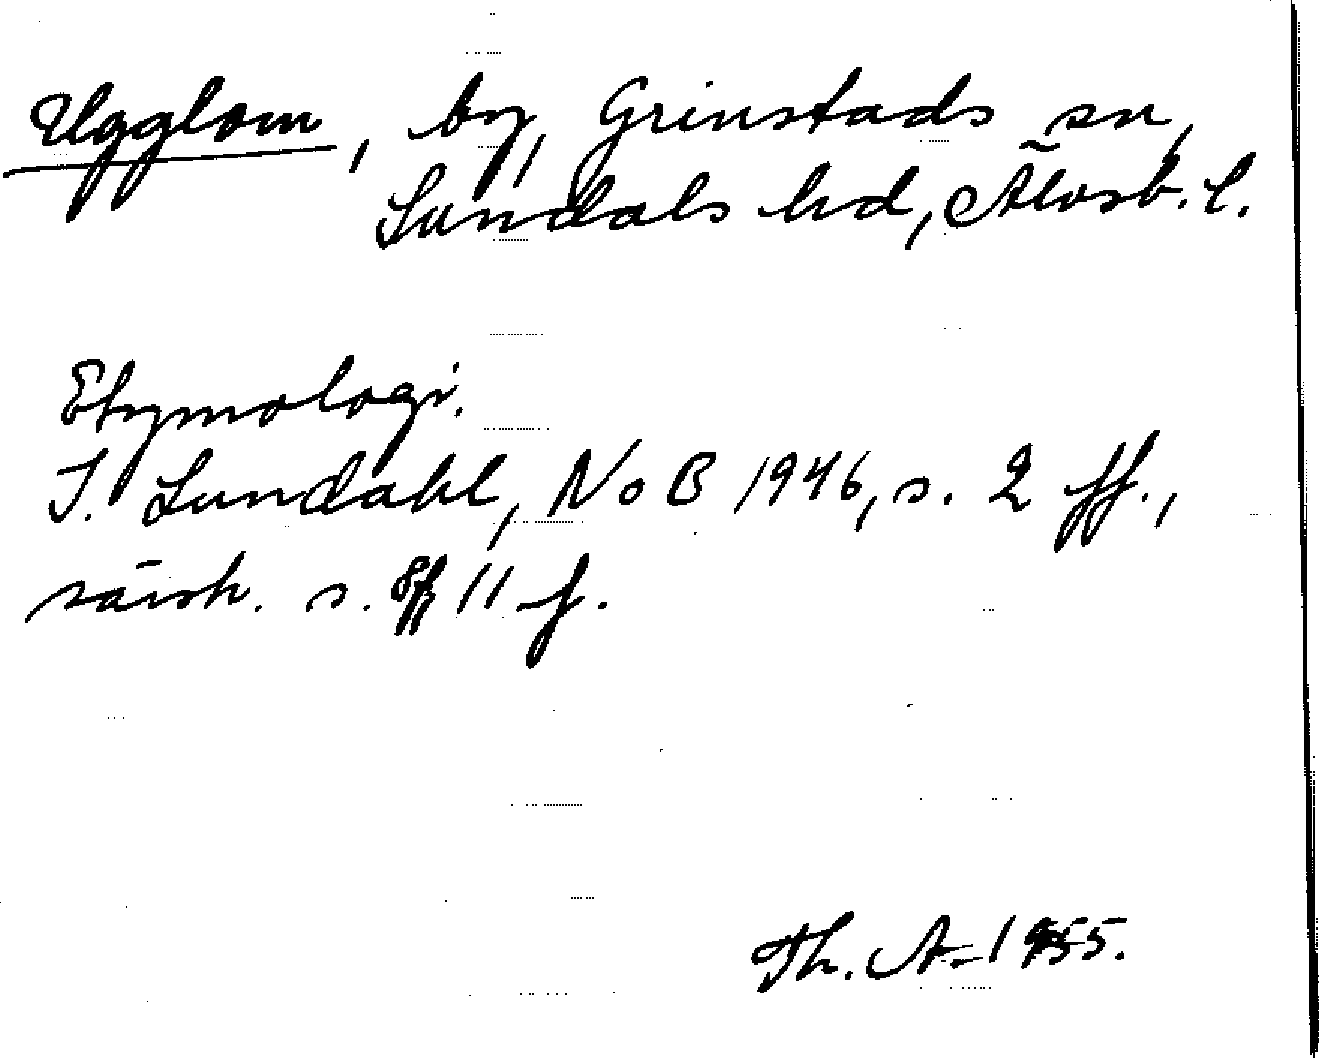 Ugglom, by, Grinstads sn,
Sundals hd, Älvsb. l.
Etymologi.
I. Lundahl, NoB 1946, s. 2 ff.,
särsk. s. 11 f.
Th. A. 1955.